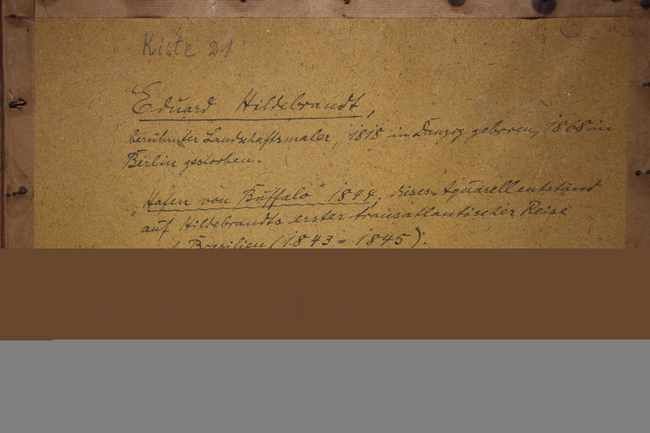 Kiste 21
Eduard Hildebrandt,
berühmter Landschaftsmaler, 1818 in Danzig geboren, 1868 in
Berlin gestorben.
"Hafen von Buffalo" 1844, dieses Aquarell entstand
auf Hildebrandts erster transatlantischer Reise
Brasilien (1843 - 1845).